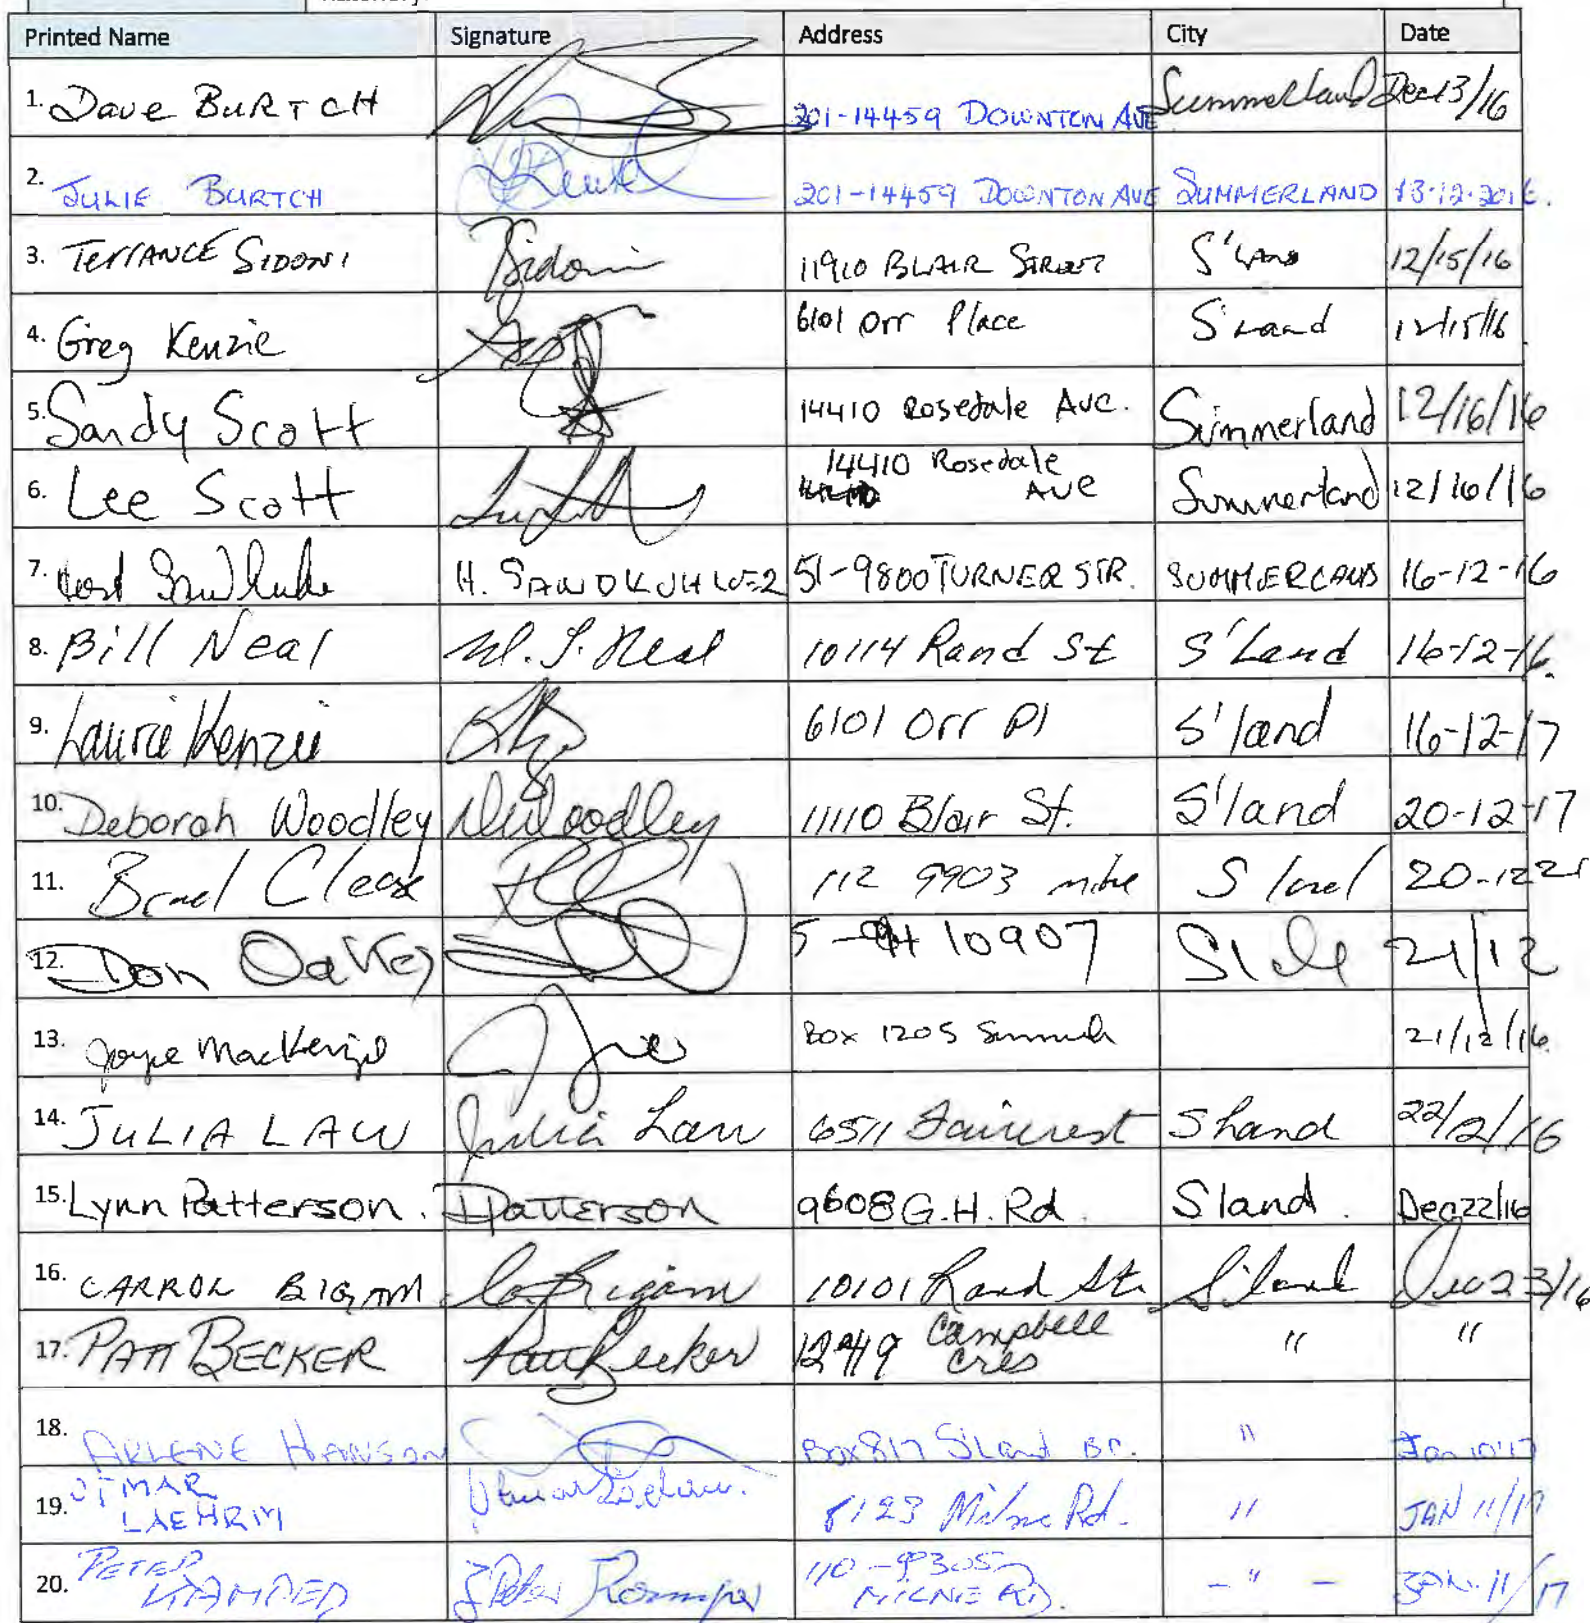 Printed Name Signature Address City Date
1. Dave BURTCH 201-14459 DOWNTON AVE Summerland Dec 13/16
2. JULIE BURTCH 201-14459 DOWNTON AVE SUMMERLAND 13-12-2016.
3. TerrANCE SIDONI Sidoni 11910 BLAIR STREET S'LAND 12/15/16
4. Greg Kenzie 6101 Orr Place S'Land 12/15/16
5. Sandy Scott 14410 Rosedale Ave. Summerland 12/16/16
6. Lee Scott 14410 Rosedale AVE Summerland 12/16/16
7. H. 51-9800 TURNER STR. SUMMERLAND 16-12-16
8. Bill Neal W. J. Neal 10114 Rand St S'Land 16-12-16.
9. Laurie Kenzie 6101 Orr Pl S'land 16-12-17
10. Deborah Woodley DWoodley 11110 Blair St. S'land 20-12-17
11. Brad 112 9903 S'land 20-12
12. Don Oakley 10907 21/12
13. Joyce MacKenzie Box 1205 21/12/16
14. JULIA LAW Julia Law 6511 Faircrest Sland 22/2/16
15. Lynn Patterson. LPatterson 9608 G.H. Rd. Sland. Dec 22/16
16. CARROL BIGAM Ca. Bigam 10101 Rand St. S'land Dec 23/16
17. PATT BECKER Patt Becker Campbell Cres " "
18. ARLENE HANSON Box 817 S'Land BC. " Jan 10'17
19. OTMAR LAEHRM 8123 Milne Rd. " JAN 11/17
20. PETER KAMPER Peter Kamper MILNE RD. - " - JAN. 11/17